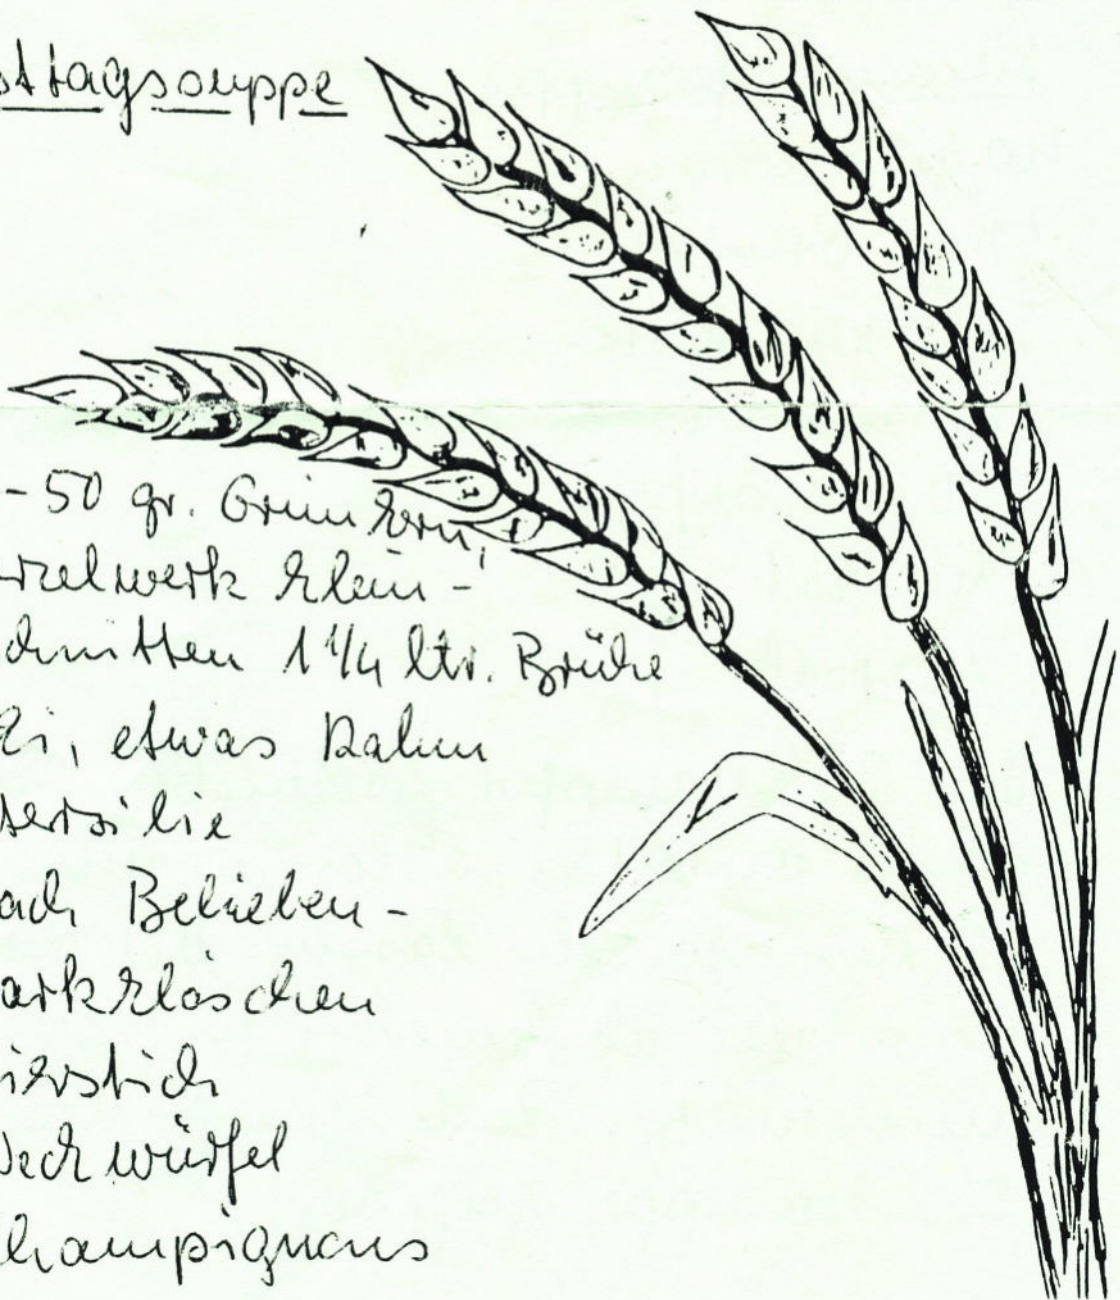 sttagssuppe
- 50 gr. Grünkern,
rzelwerk klein-
chnitten 1 1/4 ltr. Brühe
Ei, etwas Rahm
tersilie
ach Belieben -
arkklöschen
ierstich
Weckwürfel
hampignons